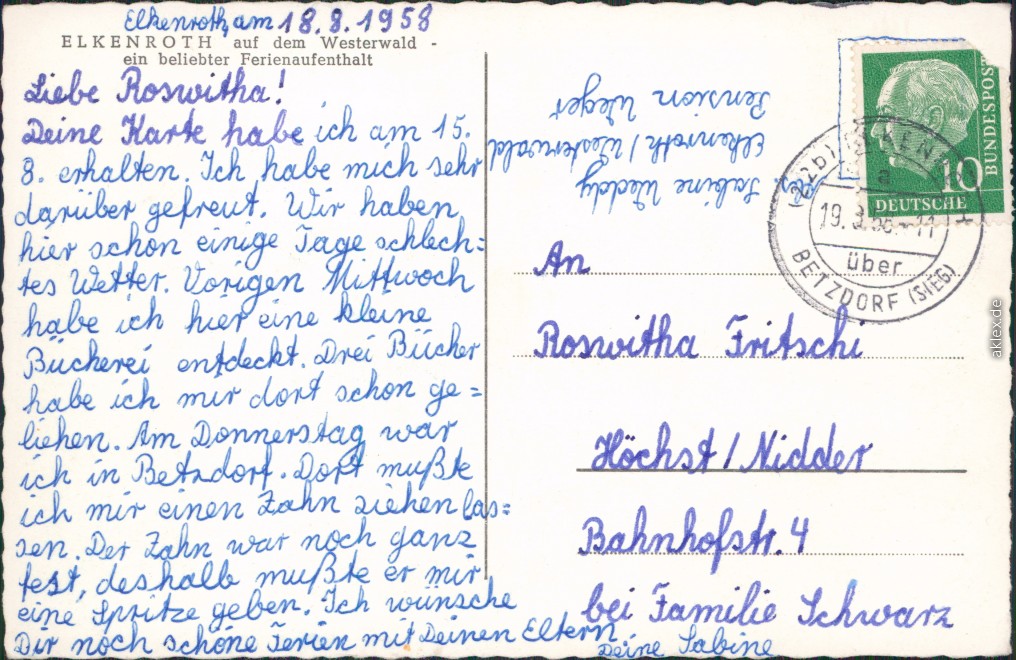 Elkenroth, am 18.8.1958
ELKENROTH auf dem Westerwald -
ein beliebter Ferienaufenthalt
Liebe Roswitha!
Deine Karte habe ich am 15.
8. erhalten. Ich habe mich sehr
darüber gefreut. Wir haben
hier schon einige Tage schlech=
tes Wetter. Vorigen Mittwoch
habe ich hier eine kleine
Bücherei entdeckt. Drei Bücher
habe ich mir dort schon ge=
liehen. Am Donnerstag war
ich in Betzdorf. Dort mußte
ich mir einen Zahn ziehen las=
sen. Der Zahn war noch ganz
fest, deshalb mußte er mir
eine Spritze geben. Ich wünsche
Dir noch schöne Ferien mit Deinen Eltern
Deine Sabine
Sabine Weddy
Elkenroth / Westerwald
Pension Weger
10
DEUTSCHE
BUNDESPOST
(22b)
a
19.
11
über
BETZDORF (SIEG)
An
Roswitha Fritschi
Höchst / Nidder
Bahnhofstr. 4
bei Familie Schwarz
aklex.de